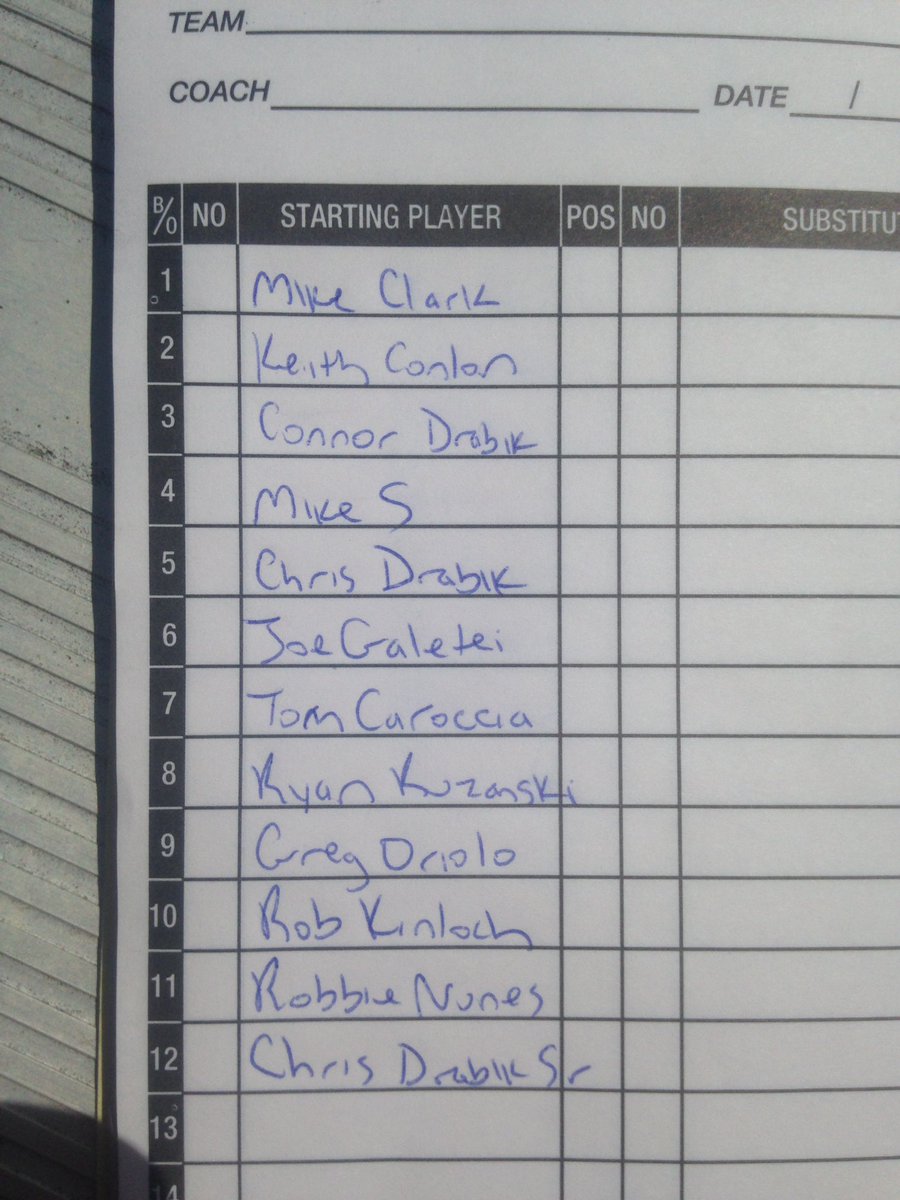 TEAM
COACH DATE /
B/O NO STARTING PLAYER POS NO SUBSTITUT
1 Mike Clark
2 Keith Conlon
3 Connor Drabik
4 Mike S
5 Chris Drabik
6 Joe Galetei
7 Tom Caroccia
8 Ryan Kuzanski
9 Greg Oriolo
10 Rob Kinloch
11 Robbie Nunes
12 Chris Drabik Sr
13
14